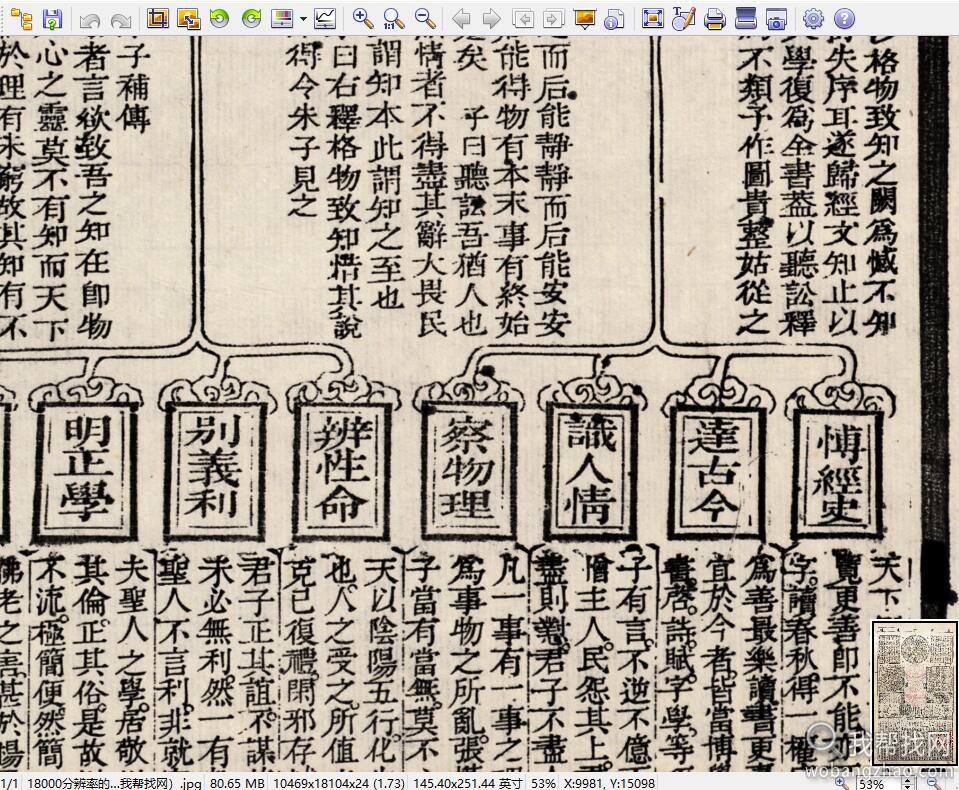 格物致知之闕為憾不知
失序耳遂歸經文知止以
學復為全書蓋以聽訟釋
不類予作圖貴整姑從之
而后能靜靜而后能安安
能得物有本末事有終始
矣 子曰聽訟吾猶人也
情者不得盡其辭大畏民
謂知本此謂知之至也
曰右釋格物致知惜其說
得令朱子見之
子補傳
者言欲致吾之知在卽物
心之靈莫不有知而天下
於理有未窮故其知有不
博經史
達古今
識人情
察物理
辨性命
別義利
明正學
天下
覽更善卽不能
字讀春秋得一權
為善最樂讀書更
宜於今者皆當博
書啓誥賦字學等
子有言不逆不億
憎主人民怨其上
盡則對君子不盡
凡一事有一事之
為事物之所亂張
子當有當無莫不
天以陰陽五行化
也人之受之所值
克已復禮閑邪存
君子正其誼不謀
求必無利然一有
聖人不言利非就
夫聖人之學居敬
其倫正其俗是故
不流極簡便然簡
佛老之害甚於楊
1:1
我帮找网
wobangzhao.com
1/1
18000分辨率的...我帮找网）.jpg
80.65 MB
10469x18104x24 (1.73)
145.40x251.44 英寸
53%
X:9981, Y:15098
53%